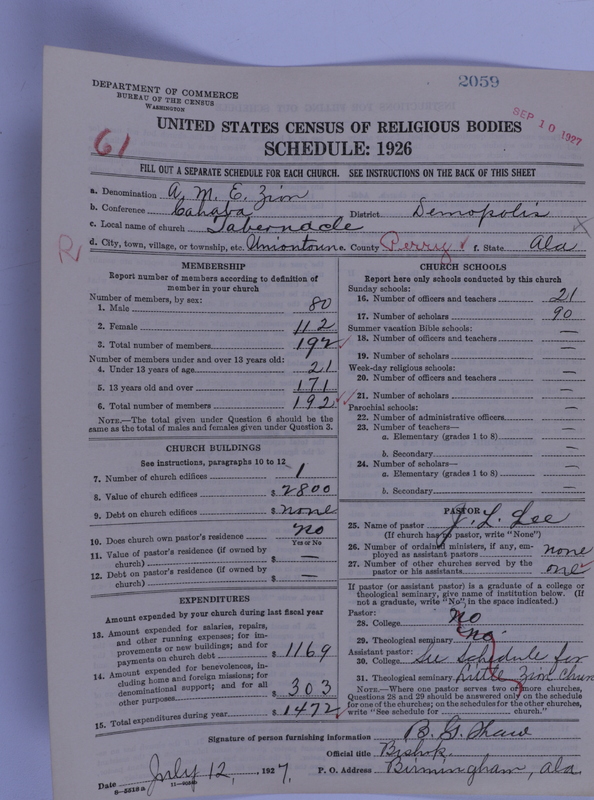 2059
DEPARTMENT OF COMMERCE
BUREAU OF THE CENSUS
WASHINGTON
SEP 10 1927
61
UNITED STATES CENSUS OF RELIGIOUS BODIES
SCHEDULE: 1926
FILL OUT A SEPARATE SCHEDULE FOR EACH CHURCH. SEE INSTRUCTIONS ON THE BACK OF THIS SHEET
a. Denomination A. M. E. Zion
b. Conference Cahaba District Demopolis
c. Local name of church Tabernacle
R
d. City, town, village, or township, etc. Uniontown e. County Perry f. State Ala
MEMBERSHIP
Report number of members according to definition of
member in your church
Number of members, by sex:
1. Male 80
2. Female 112
3. Total number of members 192
Number of members under and over 13 years old:
4. Under 13 years of age 21
5. 13 years old and over 171
6. Total number of members 192
NOTE.—The total given under Question 6 should be the
same as the total of males and females given under Question 3.
CHURCH BUILDINGS
See instructions, paragraphs 10 to 12
7. Number of church edifices 1
8. Value of church edifices $ 2800
9. Debt on church edifices $ none
10. Does church own pastor's residence? no
Yes or No
11. Value of pastor's residence (if owned by
church) $ —
12. Debt on pastor's residence (if owned by
church) $ —
EXPENDITURES
Amount expended by your church during last fiscal year
13. Amount expended for salaries, repairs,
and other running expenses; for im-
provements or new buildings; and for
payments on church debt $ 1169
14. Amount expended for benevolences, in-
cluding home and foreign missions; for
denominational support; and for all
other purposes $ 303
15. Total expenditures during year $ 1472
CHURCH SCHOOLS
Report here only schools conducted by this church
Sunday schools:
16. Number of officers and teachers 21
17. Number of scholars 90
Summer vacation Bible schools:
18. Number of officers and teachers —
19. Number of scholars —
Week-day religious schools:
20. Number of officers and teachers —
21. Number of scholars —
Parochial schools:
22. Number of administrative officers —
23. Number of teachers—
a. Elementary (grades 1 to 8) —
b. Secondary —
24. Number of scholars—
a. Elementary (grades 1 to 8) —
b. Secondary —
PASTOR
25. Name of pastor J. L. Lee
(If church has no pastor, write "None")
26. Number of ordained ministers, if any, em-
ployed as assistant pastors none
27. Number of other churches served by the
pastor or his assistants one
If pastor (or assistant pastor) is a graduate of a college or
theological seminary, give name of institution below. (If
not a graduate, write "No", in the space indicated.)
Pastor:
28. College no
29. Theological seminary no
Assistant pastor:
30. College See schedule for
31. Theological seminary Little Zion Church
NOTE.—Where one pastor serves two or more churches,
Questions 28 and 29 should be answered only on the schedule
for one of the churches; on the schedules for the other churches,
write "See schedule for church."
Signature of person furnishing information B. G. Shaw
Official title Bishop.
Date July 12, 1927. P. O. Address Birmingham, Ala.
8-5518 a